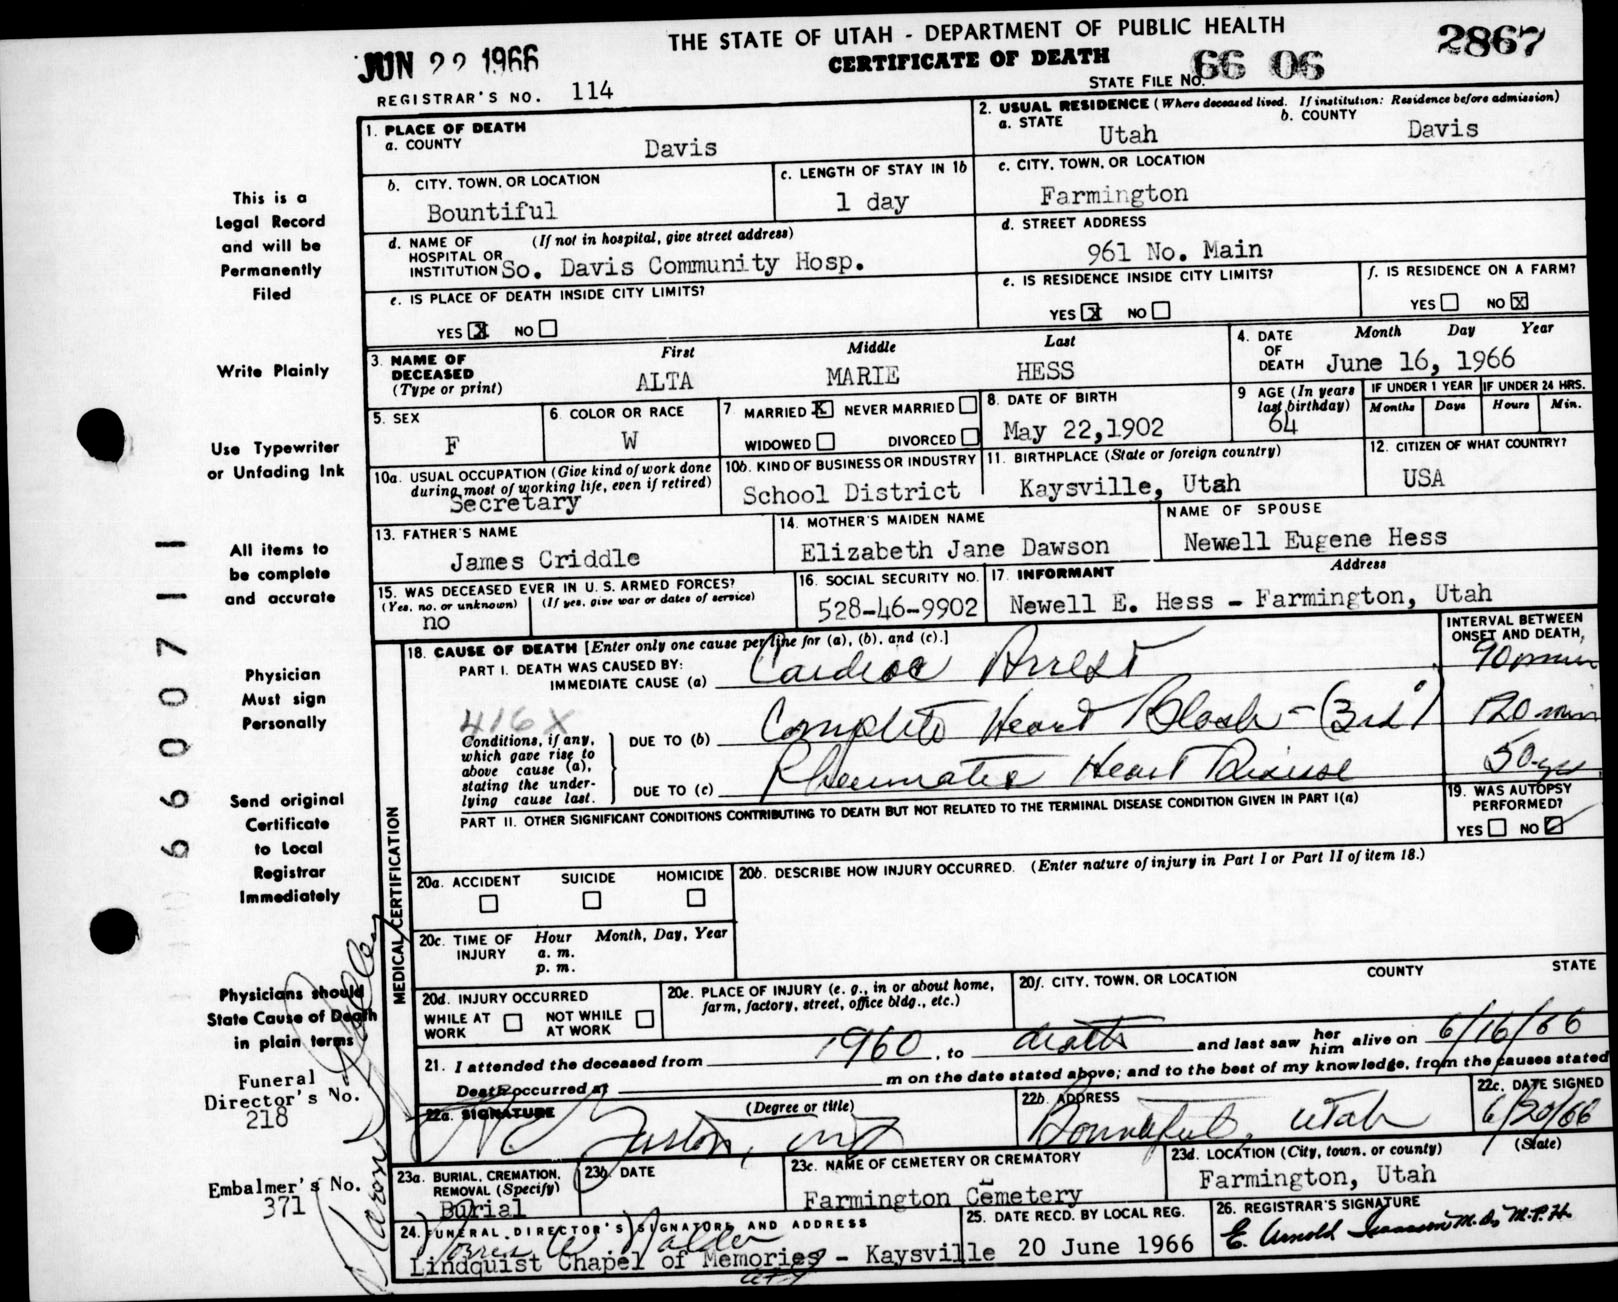 JUN 22 1966
THE STATE OF UTAH - DEPARTMENT OF PUBLIC HEALTH
CERTIFICATE OF DEATH
2867
REGISTRAR'S NO. 114
STATE FILE NO. 66 06
1. PLACE OF DEATH
a. COUNTY
Davis
2. USUAL RESIDENCE (Where deceased lived. If institution: Residence before admission)
a. STATE
Utah
b. COUNTY
Davis
b. CITY, TOWN, OR LOCATION
Bountiful
c. LENGTH OF STAY IN 1b
1 day
c. CITY, TOWN, OR LOCATION
Farmington
d. NAME OF HOSPITAL OR INSTITUTION
(If not in hospital, give street address)
So. Davis Community Hosp.
d. STREET ADDRESS
961 No. Main
e. IS PLACE OF DEATH INSIDE CITY LIMITS?
YES X NO
e. IS RESIDENCE INSIDE CITY LIMITS?
YES X NO
f. IS RESIDENCE ON A FARM?
YES NO X
3. NAME OF DECEASED (Type or print)
First Middle Last
ALTA MARIE HESS
4. DATE OF DEATH
Month Day Year
June 16, 1966
5. SEX
F
6. COLOR OR RACE
W
7 MARRIED X NEVER MARRIED
WIDOWED DIVORCED
8. DATE OF BIRTH
May 22,1902
9 AGE (In years last birthday)
64
IF UNDER 1 YEAR
Months Days
IF UNDER 24 HRS.
Hours Min.
10a. USUAL OCCUPATION (Give kind of work done during most of working life, even if retired)
Secretary
10b. KIND OF BUSINESS OR INDUSTRY
School District
11. BIRTHPLACE (State or foreign country)
Kaysville, Utah
12. CITIZEN OF WHAT COUNTRY?
USA
13. FATHER'S NAME
James Criddle
14. MOTHER'S MAIDEN NAME
Elizabeth Jane Dawson
NAME OF SPOUSE
Newell Eugene Hess
15. WAS DECEASED EVER IN U.S. ARMED FORCES?
(Yes, no, or unknown) (If yes, give war or dates of service)
no
16. SOCIAL SECURITY NO.
528-46-9902
17. INFORMANT Address
Newell E. Hess - Farmington, Utah
MEDICAL CERTIFICATION
18. CAUSE OF DEATH [Enter only one cause per line for (a), (b), and (c).]
INTERVAL BETWEEN ONSET AND DEATH,
PART I. DEATH WAS CAUSED BY:
IMMEDIATE CAUSE (a) Cardiac Arrest 90 min
416X
Conditions, if any, which gave rise to above cause (a), stating the underlying cause last.
DUE TO (b) Complete Heart Block - (3rd°) 120 min
DUE TO (c) Rheumatic Heart Disease 50 yrs
PART II. OTHER SIGNIFICANT CONDITIONS CONTRIBUTING TO DEATH BUT NOT RELATED TO THE TERMINAL DISEASE CONDITION GIVEN IN PART I(a)
19. WAS AUTOPSY PERFORMED?
YES NO
20a. ACCIDENT SUICIDE HOMICIDE
20b. DESCRIBE HOW INJURY OCCURRED. (Enter nature of injury in Part I or Part II of item 18.)
20c. TIME OF INJURY
Hour Month, Day, Year
a. m.
p. m.
20d. INJURY OCCURRED
WHILE AT WORK NOT WHILE AT WORK
20e. PLACE OF INJURY (e. g., in or about home, farm, factory, street, office bldg., etc.)
20f. CITY, TOWN, OR LOCATION COUNTY STATE
21. I attended the deceased from 1960, to death and last saw her him alive on 6/16/66
Death occurred at m on the date stated above; and to the best of my knowledge, from the causes stated
22a. SIGNATURE (Degree or title)
22b. ADDRESS
Bountiful, Utah
22c. DATE SIGNED
6/20/66
23a. BURIAL, CREMATION, REMOVAL (Specify)
Burial
23b. DATE
23c. NAME OF CEMETERY OR CREMATORY
Farmington Cemetery
23d. LOCATION (City, town, or county) (State)
Farmington, Utah
24. FUNERAL DIRECTOR'S SIGNATURE AND ADDRESS
Lindquist Chapel of Memories - Kaysville
25. DATE RECD. BY LOCAL REG.
20 June 1966
26. REGISTRAR'S SIGNATURE
This is a
Legal Record
and will be
Permanently
Filed
Write Plainly
Use Typewriter
or Unfading Ink
All items to
be complete
and accurate
Physician
Must sign
Personally
Send original
Certificate
to Local
Registrar
Immediately
Physicians should
State Cause of Death
in plain terms
Funeral
Director's No.
218
Embalmer's No.
371